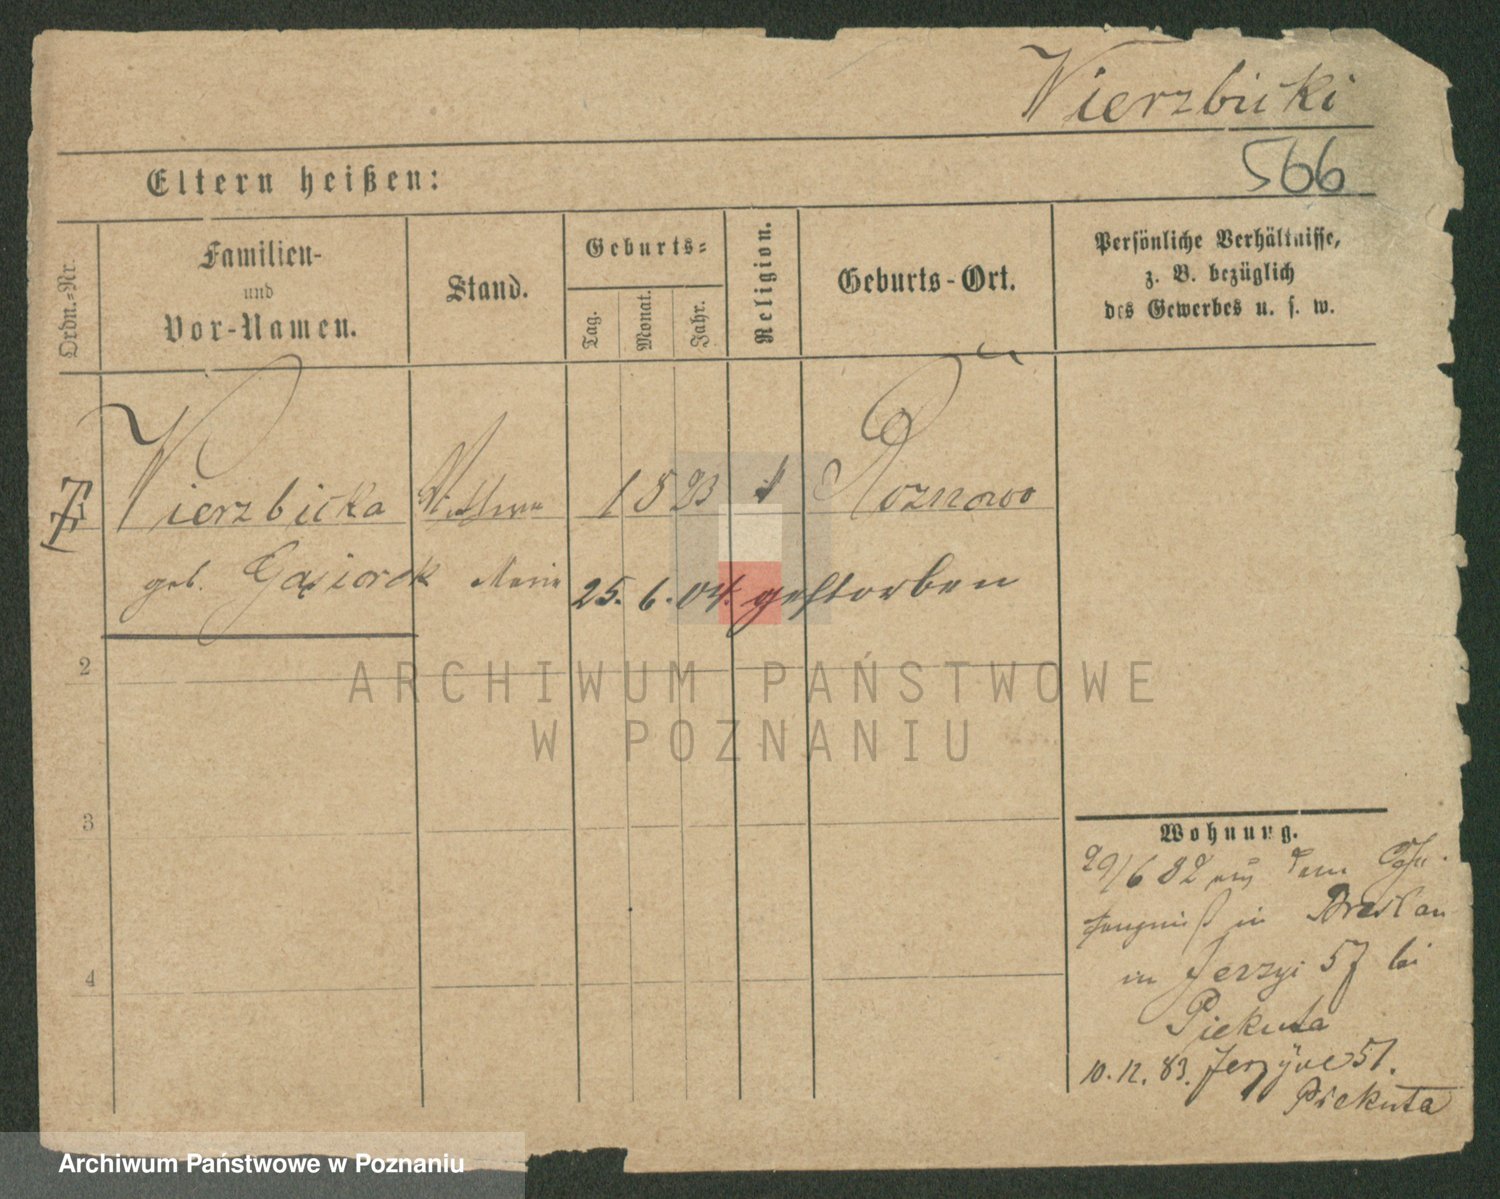 Wierzbicki
566
Eltern heißen:
Ordn.-Nr.
Familien-
und
Vor-Namen.
Stand.
Geburts-
Tag.
Monat.
Jahr.
Religion.
Geburts-Ort.
Persönliche Verhältnisse,
z. B. bezüglich
des Gewerbes u. s. w.
Wierzbicka
geb. Gąsiorok Marie
Roznowo
25. 6. 04. gestorben
2
3
4
Wohnung.
29/6 82 aus dem Gefn-
fängniß in Breslau
in Jerzyi 57 bei
Piekuta
10. 12. 83. Jerzyce 57.
Piekuta
ARCHIWUM PAŃSTWOWE
W POZNANIU
Archiwum Państwowe w Poznaniu